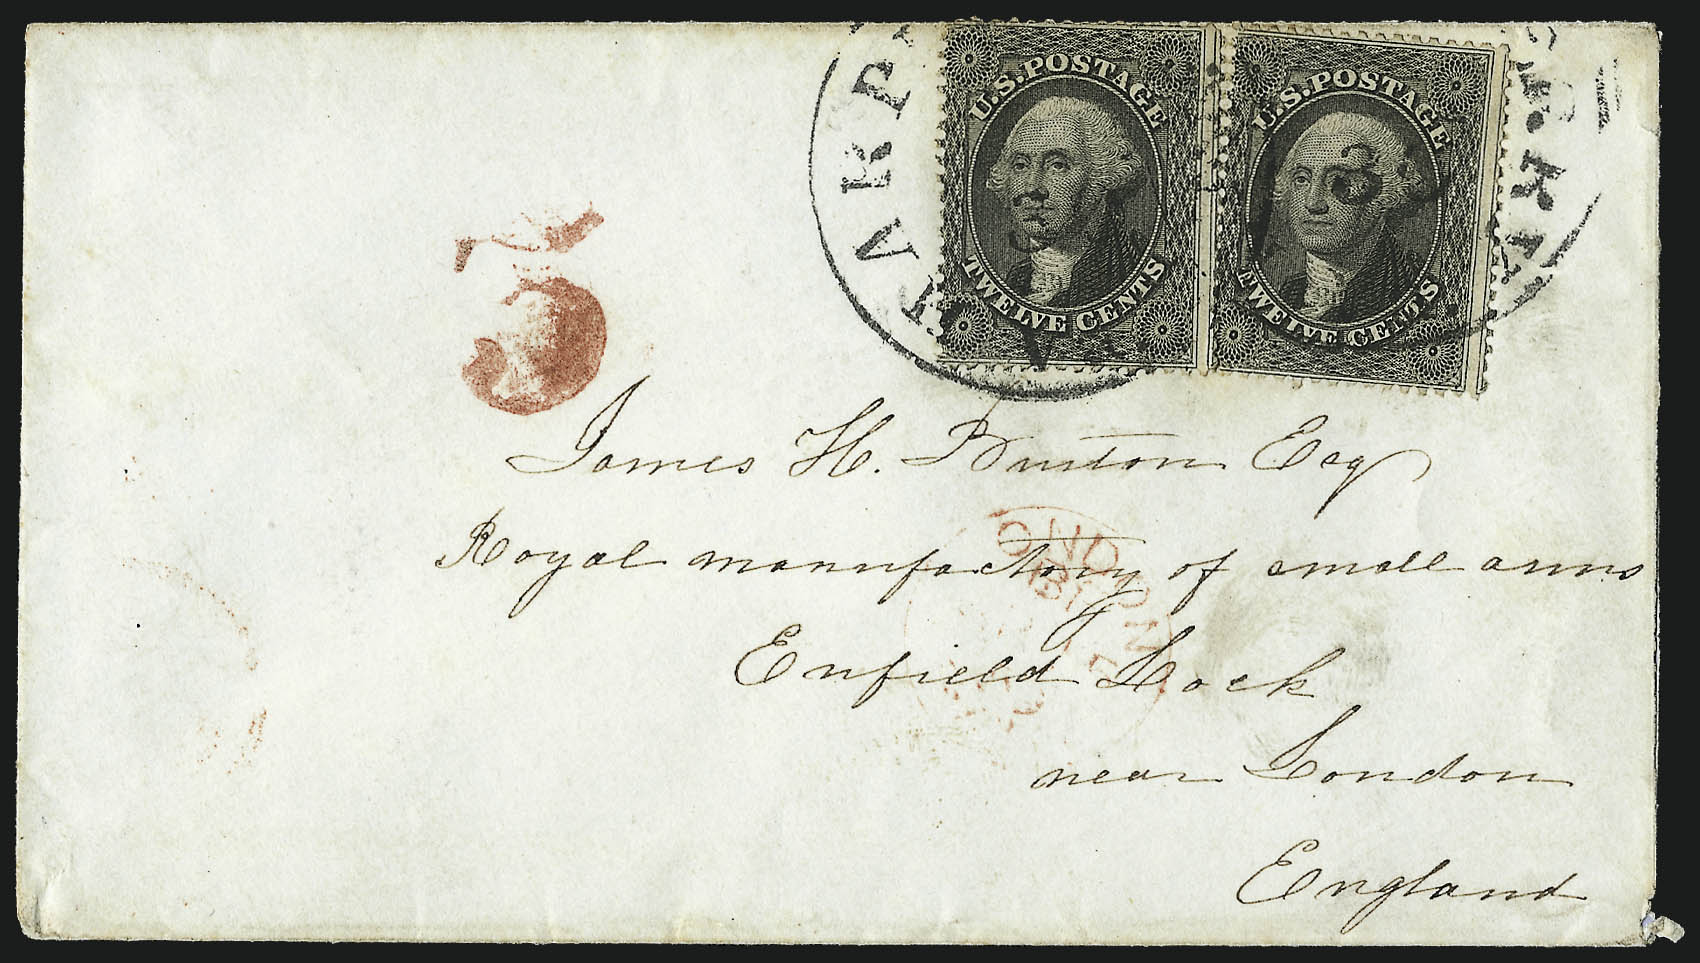 U.S. POSTAGE
TWELVE CENTS
U.S. POSTAGE
TWELVE CENTS
HARPERS FERRY
VA.
8
3
James H. Burton Esq
Royal manufactory of small arms
Enfield Lock
near London
England
LONDON